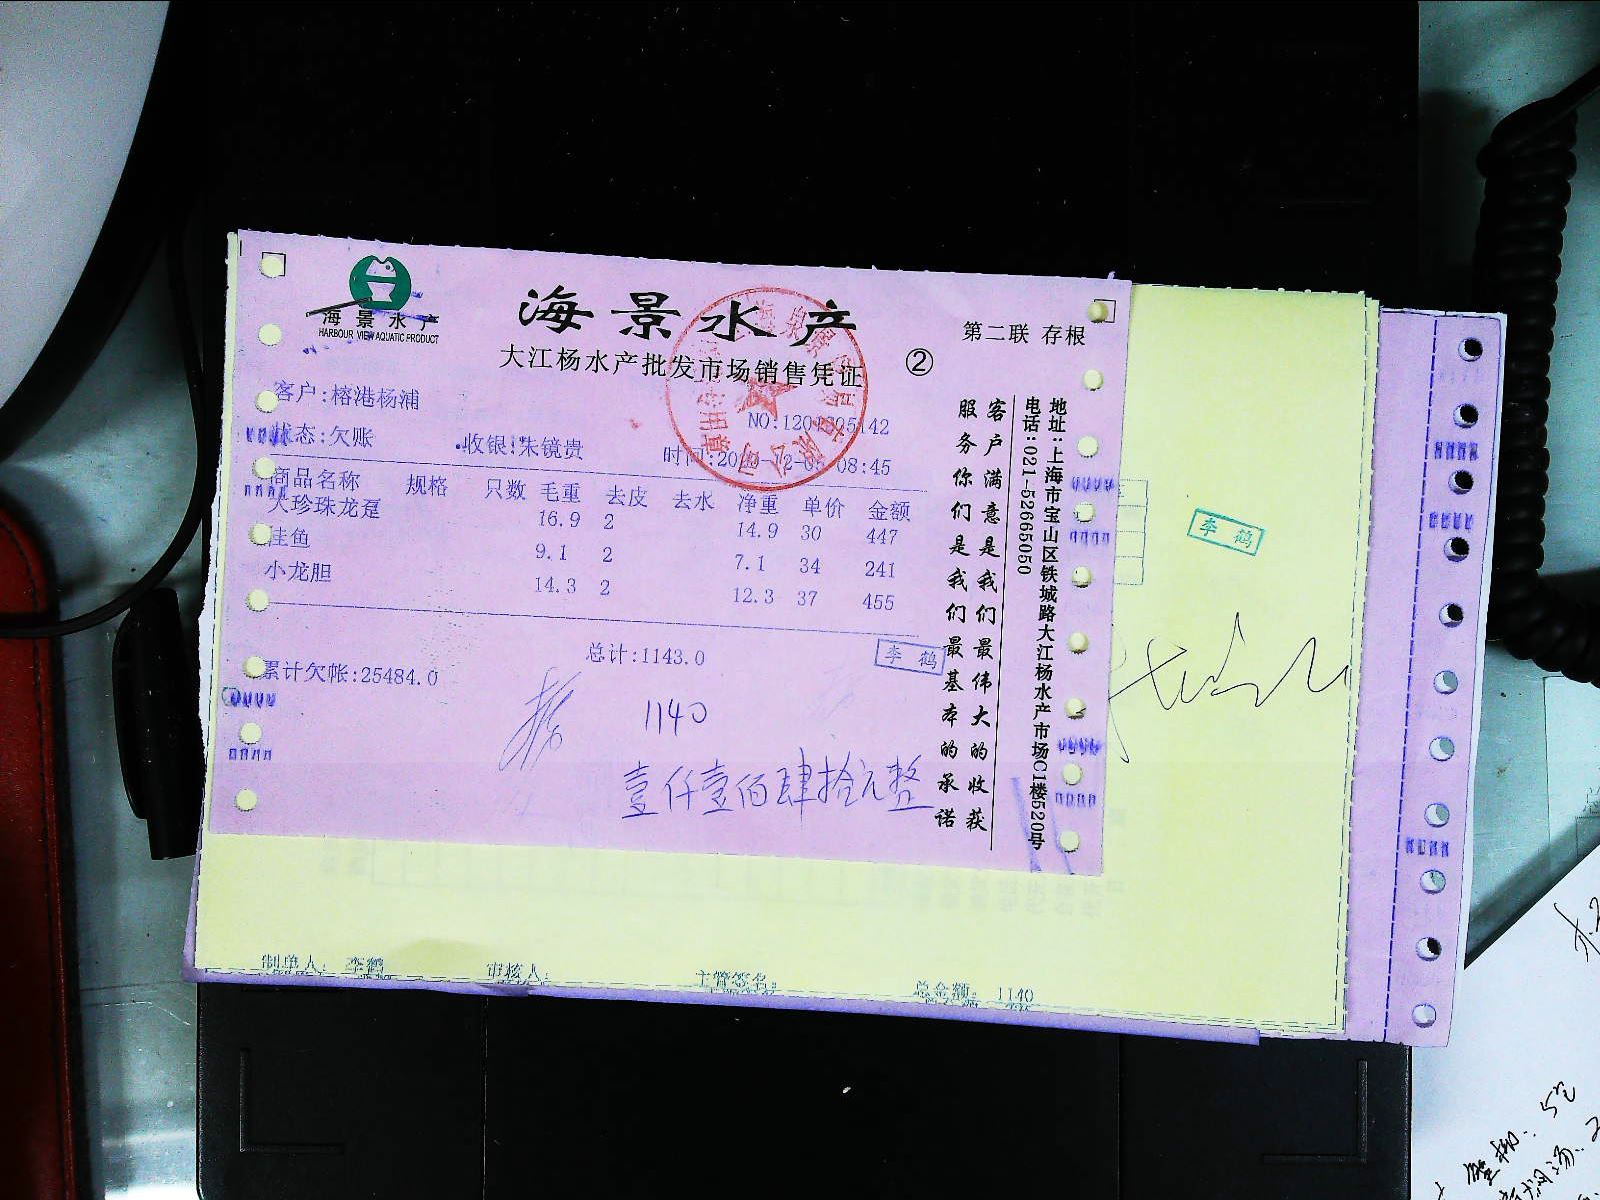 海景水产
HARBOUR VIEW AQUATIC PRODUCT
海景水产
大江杨水产批发市场销售凭证
②
第二联 存根
客户:榕港杨浦
状态:欠账 收银:朱镜贵
时间: 08:45
商品名称 规格 只数 毛重 去皮 去水 净重 单价 金额
大珍珠龙趸 16.9 2 14.9 30 447
桂鱼 9.1 2 7.1 34 241
小龙胆 14.3 2 12.3 37 455
总计:1143.0
李鹤
累计欠帐:25484.0
1140
壹仟壹佰肆拾元整
客户满意是我们最伟大的收获
服务你们是我们最基本的承诺
地址:上海市宝山区铁城路大江杨水产市场C1楼520号
电话:021-52665050
李鹤
制单人: 李鹤 审核人: 主管签名: 总金额: 1140